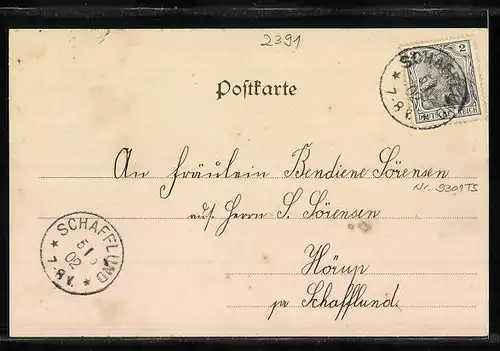 2391
Postkarte
2
SCHAFFLUND
DEUTSCHES REICH
7-8
An Fräulein Bendiene Sörensen
Nr. 9301TS
adr. Herrn S. Sörensen
Hörup
pr Schafflund.
SCHAFFLUND
5/
02
7-8 V.